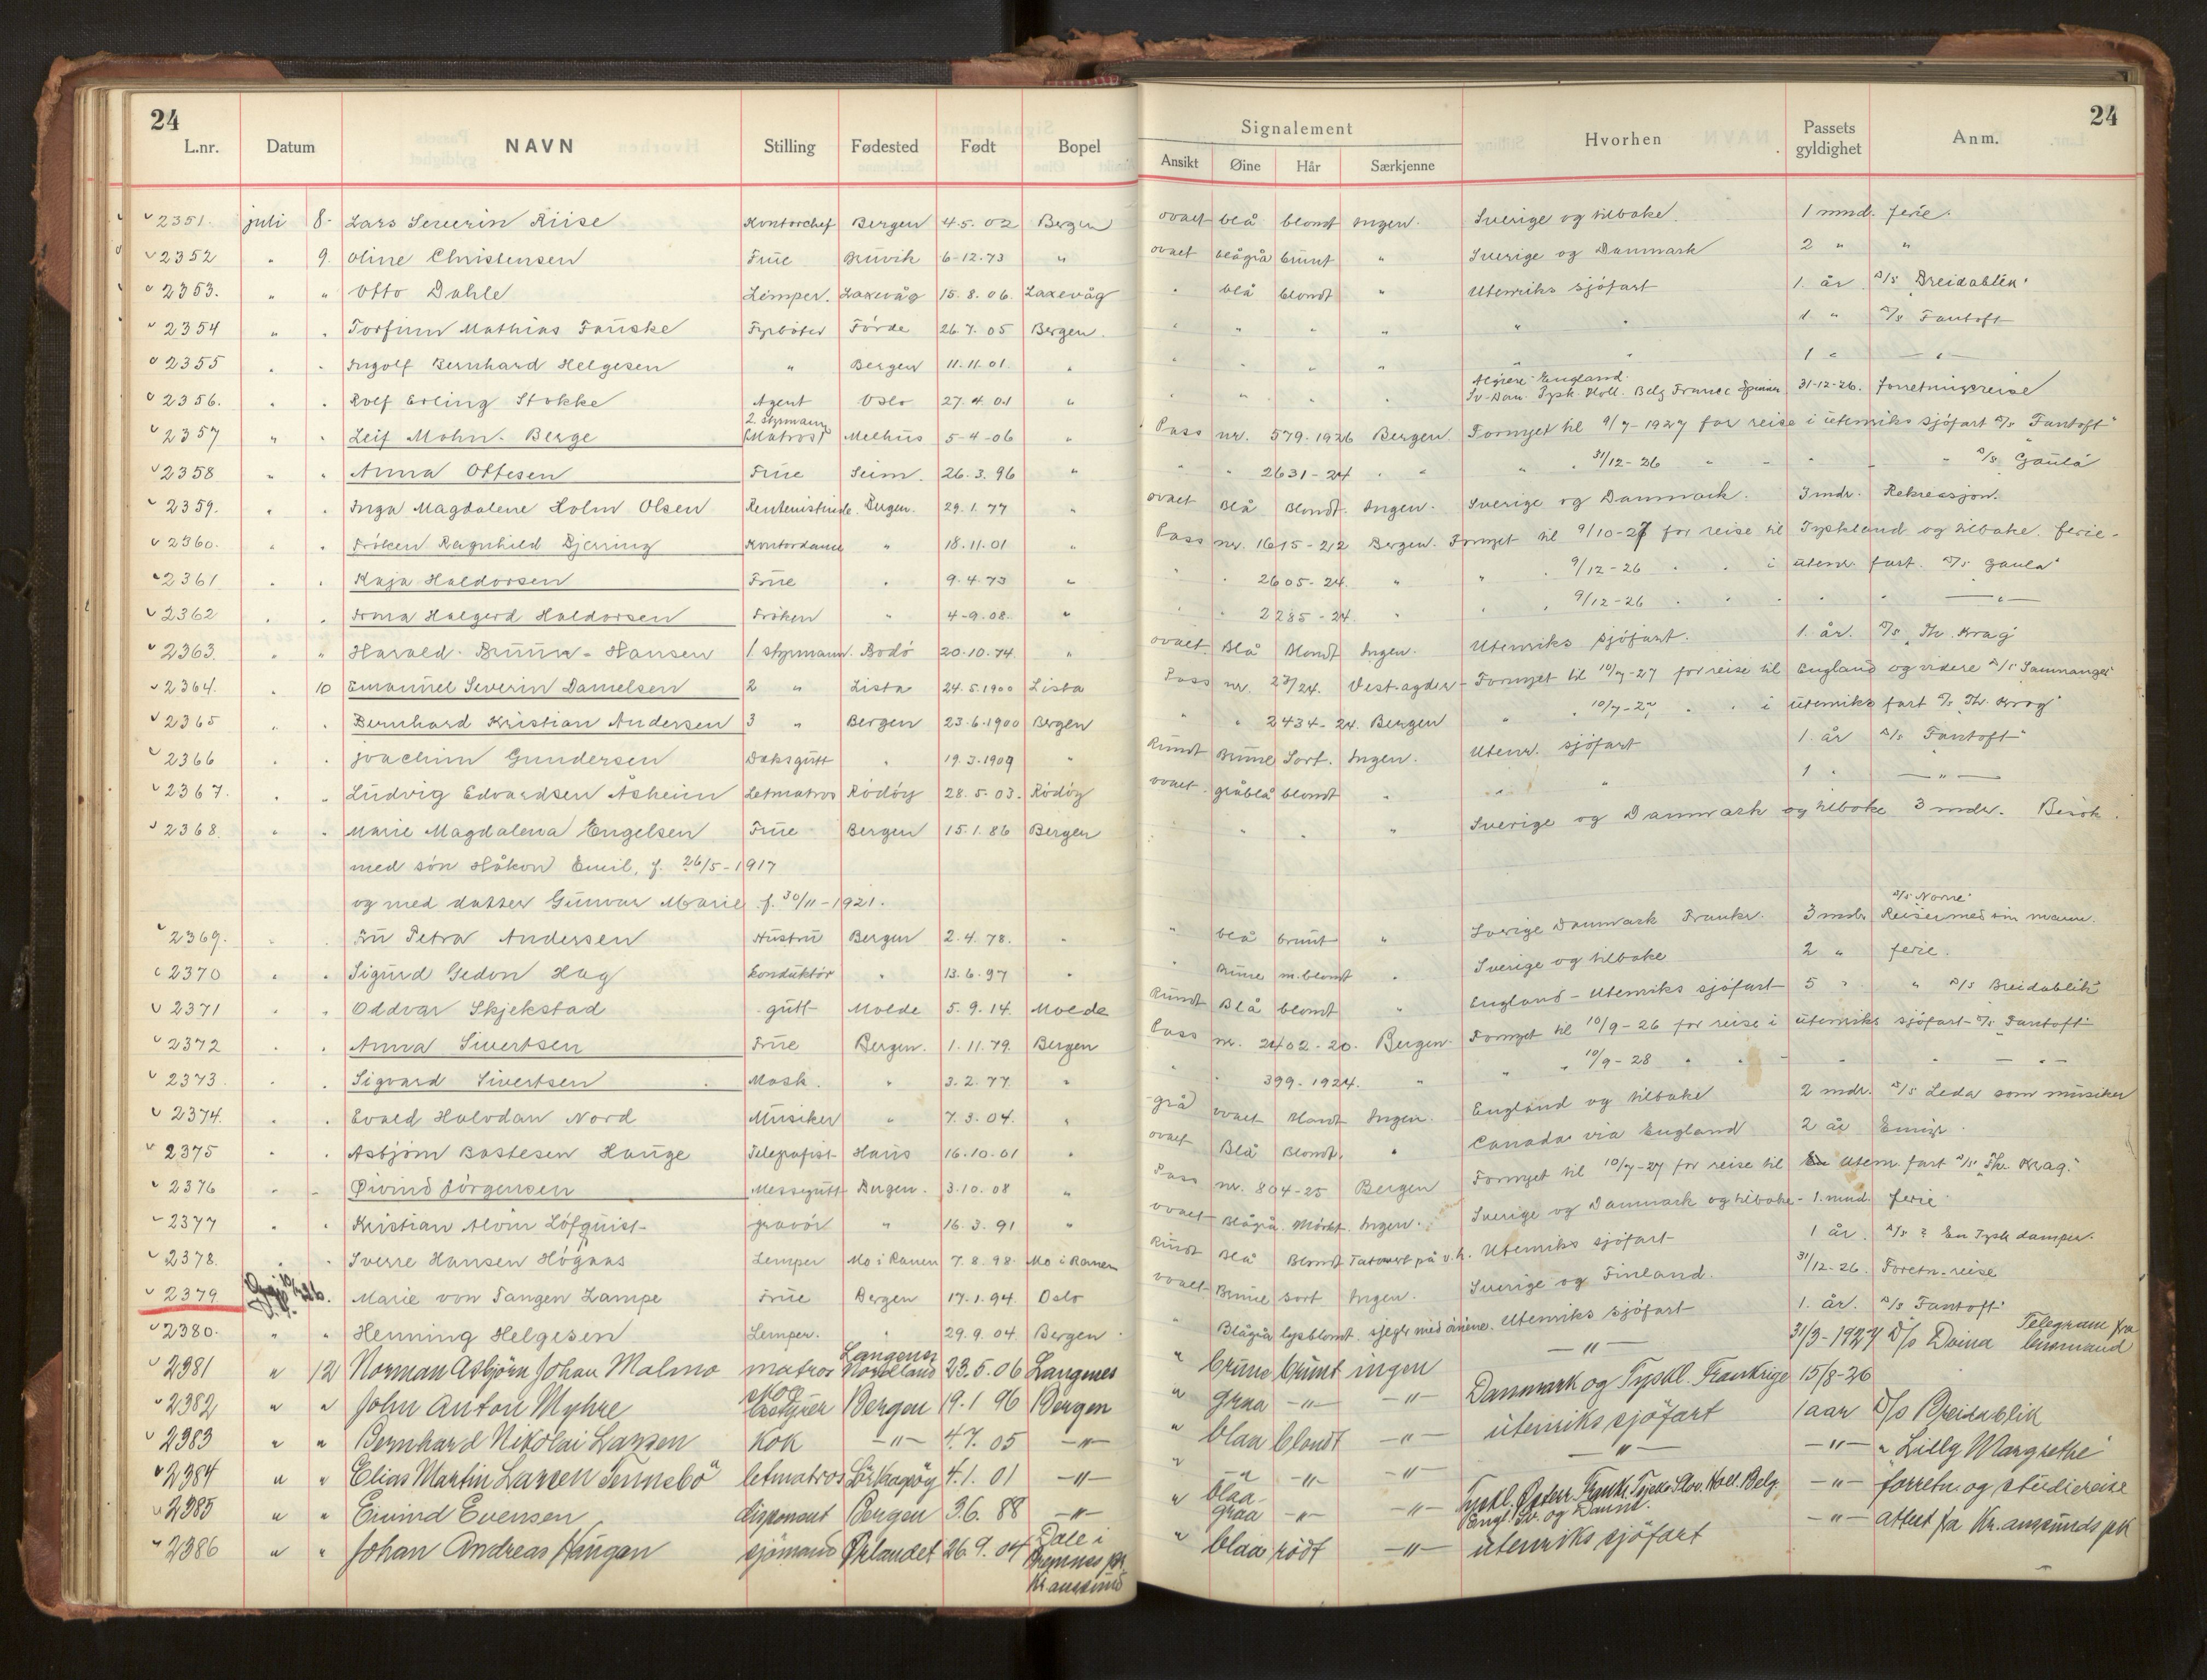 24
L.nr. Datum NAVN Stilling Fødested Født Bopel
2351. juli 8- Lars Severin Riise Kontorchef Bergen 4-5. 02 Bergen
2352 " 9. Oline Christensen Frue Bruvik 6-12-73 "
2353. " " Otto Dahle Lemper. Laxevåg 15. 8. 06. Laxevåg
2354 " " Torfinn Mathias Fauske Fyrbøter Förde 26. 7. 05 Bergen.
2355 " " Ingolf Bernhard Helgesen " Bergen 11. 11. 01. "
2356. " " Rolf Erling Stokke Agent Oslo 27. 4. 01 "
2. styrmann
2357 " " Leif Mohn-Berge (Matros) Melhus 5-4-06 "
2358 " " Anna Ottesen Frue Seim. 26. 3. 96 "
2359. " " Inga Magdalene Holm Olsen Rentenistinde. Bergen. 29. 1. 77 "
2360. " " Fröken Ragnhild Bjerring Kontordame " 18. 11. 01 "
2361 " " Kaja Haldorsen Frue " 9. 4. 73 "
2362 " " Irma Halgerd Haldorsen Fröken " 4-9. 08. "
2363 " " Harald Bruun-Hansen 1. styrmann. Bodö 20. 10. 74. "
2364. " 10 Emanuel Severin Danielsen 2 " Lista 24. 5. 1900 Lista
2365 " " Bernhard Kristian Andersen 3 " Bergen 23. 6. 1900 Bergen
2366 " " Joachim Gundersen Daksgutt " 19. 3. 1909 "
2367. " " Ludvig Edvardsen Åsheim Letmatros Rödöy 28. 5. 03. Rödöy
2368. " " Marie Magdalena Engelsen Frue Bergen 15. 1. 86 Bergen
med sön Håkon Emil, f. 26/5-1917
og med datter Gunvor Marie f. 30/11-1921.
2369. " " Fru Petra Andersen Hustru Bergen 2. 4. 78. "
2370 " " Sigurd Gedon Hag Konduktör " 13. 6. 97 "
2371 " " Oddvar Skjekstad gutt Molde 5. 9. 14. Molde
2372 " " Anna Sivertsen Frue Bergen. 1. 11. 79. Bergen
2373 " " Sigvard Sivertsen Mask. " 3. 2. 77. "
2374. " " Evald Halvdan Nord Musiker " 7. 3. 04. "
2375 " " Asbjörn Bastesen Hauge Telegrafist Haus 16. 10. 01 "
2376 " " Øivind Jörgensen Messegutt Bergen. 3. 10. 08 "
2377 " " Kristian Alvin Löfquist gravör " 16. 3. 91 "
2378. " " Sverre Hansen Högaas Lemper Mo i Ranen 7. 8. 98. Mo i Ranen
2379 Marie von Tangen Lampe Frue Bergen 17. 1. 94. Oslo
2380. " " Henning Helgesen Lemper. " 29. 9. 04 Bergen.
Langenes
2381 " 12 Norman Asbjörn Johan Malmo matros Nordland 23. 5. 06 Langenes
2382 " " John Anton Myhre Bergen 19. 1 96 Bergen
2383 " " Bernhard Nikolai Larsen kok -"- 4. 7. 05 -"-
2384 " " Elias Martin Larsen Tennebö letmatros 4. 1. 01 -"-
2385 " " Eivind Evensen disponent Bergen 3. 6. 88 -"-
2386 " " Johan Andreas Haugan sjömand Ørlandet 26. 9. 04 Dale i
Bremnes pr.
Kr. anssund
24
Signalement Hvorhen Passets gyldighet Anm.
Ansikt Øine Hår Særkjenne
ovalt blå blondt Ingen. Sverige og tilbake. 1 mnd. ferie.
ovalt blågrå brunt " Sverige og Danmark 2 " "
" blå blondt " Utenriks sjöfart 1. år. D/S "Breidablik"
" " " " " " 1. " D/S Fantoft
" " " " " 1 " -"-
England.
Sv-Dan. Tysk. Holl. Belg Franc 31-12-26. forretningsreise
Pass nr. 579-1926 Bergen Fornyet til 9/7-1927 for reise i utenriks sjöfart D/S "Fantoft"
" " 2631-24 " " " " 31/12-26 " " " " D/S "Gaula"
ovalt Blå Blondt. Ingen. Sverige og Danmark. 3 mdr. Rekreasjon.
Pass nr. 1615-22 Bergen. Fornyet til 9/10-27 for reise til Tyskland og tilbake. ferie-
" " 2605-24. " " " 9/12-26 " " i utenr. fart. D/S "Gaula"
" " 2285-24 " " " 9/12-26 " " " " " -"-
ovalt. Blå Blondt Ingen. Utenriks sjöfart. 1. år. D/S "Th. Krag"
Pass nr. 23/24. Vest-agder- Fornyet til 10/7-27 for reise til England og videre D/S "Samnanger"
" " 2434-24. Bergen " " 10/7-27 " " i utenriks fart D/S "Th. Krag"
Rundt Brune Sort. Ingen. Utenr. sjöfart 1. år D/S "Fantoft"
ovalt gråblå blondt " " " 1 " -"-
" " " " Sverige og Danmark og tilbake 3 mdr. Besök.
D/S "Norne"
" blå brunt " Sverige Danmark Frankr. 3 mdr Reiser med sin mann.
" Brune m. blondt " Sverige og tilbake 2 " ferie.
Rundt Blå blondt " England - Utenriks sjöfart 5 " " D/S Breidablik"
Pass nr. 2402-20. Bergen. Fornyet til 10/9-26 for reise i utenriks sjöfart - D/S "Fantoft"
" " 399-1924. " " " 10/9-28 " " " " " -"-
grå ovalt Blondt Ingen. England og tilbake 2 mdr. D/S Leda som musiker
ovalt Blå Blondt. " Canada via England 2 år Emigr.
Pass nr. 804-25 Bergen Fornyet til 10/7-27 for reise til utenr. fart D/S "Th. Krag."
ovalt Blågrå. Mörkt. Ingen. Sverige og Danmark og tilbake - 1. mnd. ferie
Rundt Blå Blondt Tatovert på v.h. Utenriks sjöfart 1 år. D/S ? En Tysk damper.
ovalt Brune sort Ingen. Sverige og Finland. 31/12-26. Forretn. reise
" Blågrå lysblondt. sjegler med öinene. Utenriks sjöfart 1. år. D/S Fantoft"
" brune brunt ingen -"- 31/3-1927 D/S Doina Telegram fra lensmand
" graa -"- -"- Danmark og Tyskl. Frankrige 15/8-26
" blaa blondt -"- utenriks sjöfart 1 aar D/S Breidablik
" " -"- -"- -"- -"- " "Lilly Margrethe"
" blaa-
graa -"- -"- Tyskl. Østerr. Frankr. Tjeko Slov. Holl. Belg.
Engl. Sv. og Danm. -"- forretn. og studiereise
" blaa rödt -"- utenriks sjöfart -"- attest fra Kr. anssunds pk